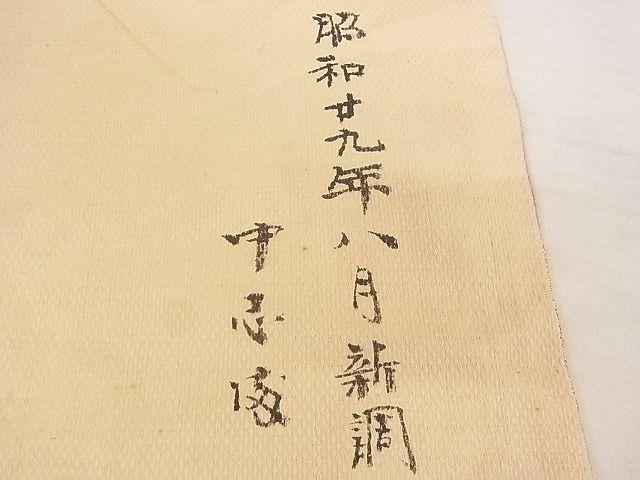 昭和廿九年八月新調
中